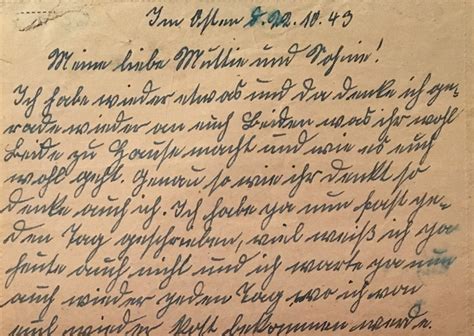 Im Osten d. 22.10.43
Meine liebe Muttie und Sohnie!
Ich habe wieder etwas und da denke ich ge-
rade wieder an euch Beiden was ihr wohl
Beide zu Hause macht und wie es euch
wohl geht. Genau so wie ihr denkt so
denke auch ich. Ich habe ja nun fast je-
den Tag geschrieben, viel weiß ich ja
heute auch nicht und ich warte ja nun
auch wieder jeden Tag wo ich von
euch wieder Post bekommen werde